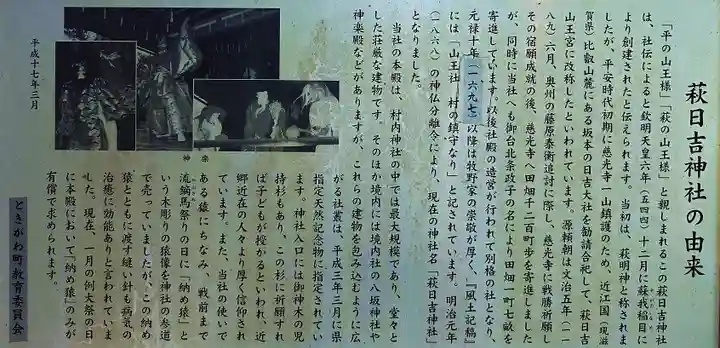 萩日吉神社の由来
「平の山王様」「萩の山王様」と親しまれるこの萩日吉神社
は、社伝によると欽明天皇六年（五四四）十二月に蘇我稲目に
より創建されたと伝えられます。当初は、萩明神と称されま
したが、平安時代初期に慈光寺一山鎮護のため、近江国（現滋
賀県）比叡山麓にある坂本の日吉大社を勧請合祀して、萩日吉
山王宮に改称したといわれています。源頼朝は文治五年（一一
八九）六月、奥州の藤原泰衡追討に際し、慈光寺に戦勝祈願し
その宿願成就の後、慈光寺へ田畑千二百町歩を寄進しました
が、同時に当社へも御台北条政子の名により田畑一町七畝を
寄進しています。以後社殿の造営が行われて別格の社となり、
元禄十年（一六九七）以降は牧野家の崇敬が厚く、『風土記稿』
には「山王社　村の鎮守なり」と記されています。明治元年
（一八六八）の神仏分離令により、現在の神社名「萩日吉神社」
となりました。
当社の本殿は、村内神社の中では最大規模であり、堂々と
した荘厳な建物です。そのほか境内には境内社の八坂神社や
神楽殿などがありますが、これらの建物を包み込むように広
がる社叢は、平成三年三月に県
指定天然記念物に指定されてい
ます。神社入口には御神木の児
持杉もあり、この杉に祈願すれ
ば子どもが授かるといわれ、近
郷近在の人々より厚く信仰され
ています。また、当社の使いで
ある猿にちなみ、戦前まで
流鏑馬祭りの日に「納め猿」と
いう木彫りの猿像を神社の参道
で売っていましたが、この納め
猿とともに渡す縫い針も病気の
治癒に効能ありと言われていま
した。現在、一月の例大祭の日
に本殿において「納め猿」のみが
有償で求められます。
神楽
平成十七年三月
ときがわ町教育委員会